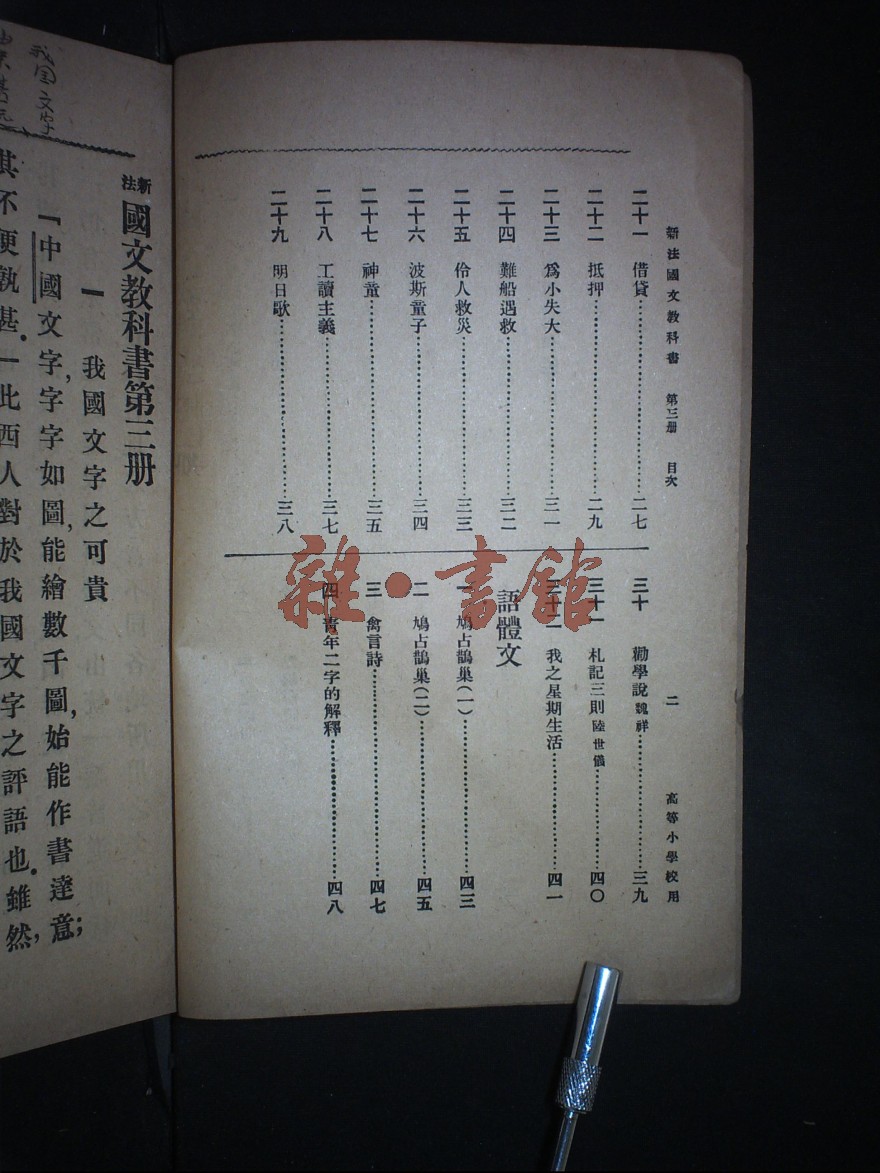 新法國文教科書 第三册 目次 二 高等小學校用
二十一 借貸 二七
二十二 抵押 二九
二十三 爲小失大 三一
二十四 難船遇救 三二
二十五 伶人救災 三三
二十六 波斯童子 三四
二十七 神童 三五
二十八 工讀主義 三七
二十九 明日歌 三八
三十 勸學說 魏祥 三九
三十一 札記三則 陸世儀 四〇
三十二 我之星期生活 四一
語體文
一 鳩占鵲巢(一) 四三
二 鳩占鵲巢(二) 四五
三 禽言詩 四七
四 青年二字的解釋 四八
雜·書館
新法國文教科書第三册
一 我國文字之可貴
「中國文字,字字如圖,能繪數千圖,始能作書達意;
其不便孰甚。」此西人對於我國文字之評語也。雖然,
我国文字